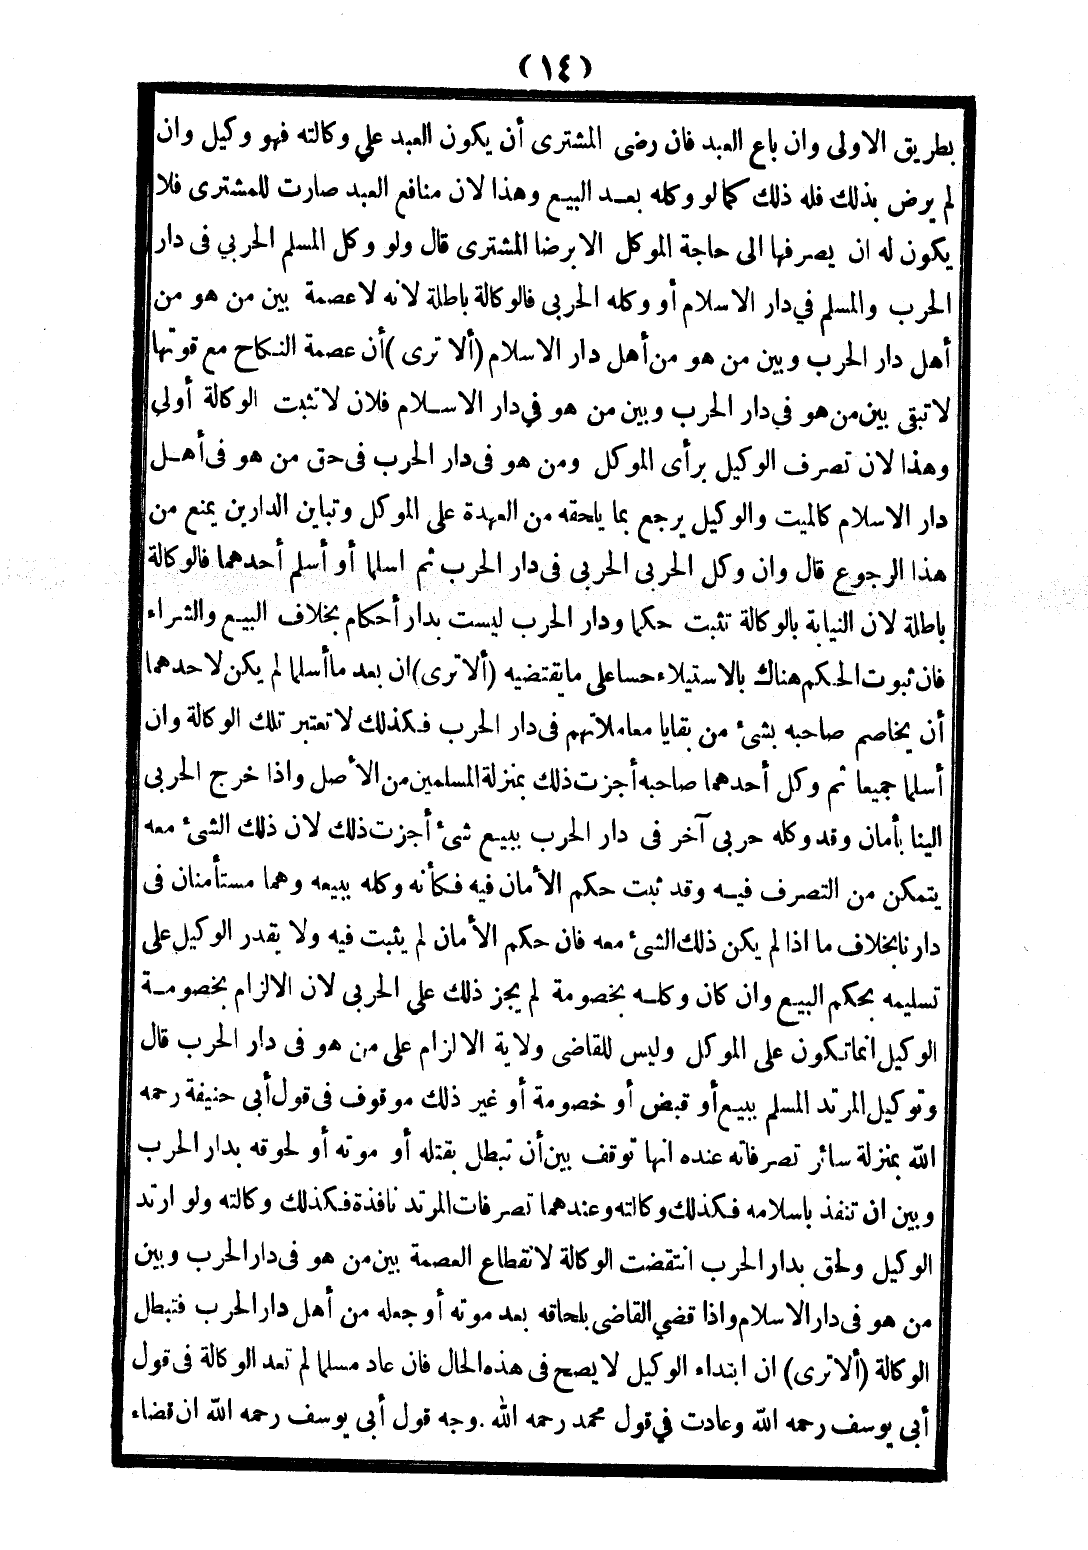 (١٤)
بطريق الاولى وان باع العبد فان رضى المشترى أن يكون العبد علي وكالته فهو وكيل وان
لم يرض بذلك فله ذلك كما لو وكله بعد البيع وهذا لان منافع العبد صارت للمشترى فلا
يكون له ان يصرفها الى حاجة الموكل الا برضا المشترى قال ولو وكل المسلم الحربي فى دار
الحرب والمسلم في دار الاسلام أو وكله الحربى فالوكالة باطلة لانه لا عصمة بين من هو من
أهل دار الحرب وبين من هو من أهل دار الاسلام (ألا ترى) أن عصمة النكاح مع قوتها
لا تبقى بين من هو في دار الحرب وبين من هو في دار الاسلام فلان لا تثبت الوكالة أولي
وهذا لان تصرف الوكيل برأى الموكل ومن هو فى دار الحرب فى حق من هو فى أهل
دار الاسلام كالميت والوكيل يرجع بما يلحقه من العهدة على الموكل وتباين الدارين يمنع من
هذا الرجوع قال وان وكل الحربى الحربى فى دار الحرب ثم اسلما أو أسلم أحدهما فالوكالة
باطلة لان النيابة بالوكالة تثبت حكما ودار الحرب ليست بدار أحكام بخلاف البيع والشراء
فان ثبوت الحكم هناك بالاستيلاء حسا على ما يقتضيه (ألا ترى) ان بعد ما أسلما لم يكن لاحدهما
أن يخاصم صاحبه بشئ من بقايا معاملاتهم فى دار الحرب فكذلك لا تعتبر تلك الوكالة وان
أسلما جميعا ثم وكل أحدهما صاحبه أجزت ذلك بمنزلة المسلمين من الأصل واذا خرج الحربى
الينا بأمان وقد وكله حربى آخر فى دار الحرب ببيع شئ أجزت ذلك لان ذلك الشئ معه
يتمكن من التصرف فيه وقد ثبت حكم الأمان فيه فكأنه وكله ببيعه وهما مستأمنان فى
دارنا بخلاف ما اذا لم يكن ذلك الشئ معه فان حكم الأمان لم يثبت فيه ولا يقدر الوكيل على
تسليمه بحكم البيع وان كان وكله بخصومة لم يجز ذلك علي الحربى لان الالزام بخصومة
الوكيل انما تكون على الموكل وليس للقاضى ولاية الالزام على من هو فى دار الحرب قال
وتوكيل المرتد المسلم ببيع أو قبض أو خصومة أو غير ذلك موقوف فى قول أبى حنيفة رحمه
الله بمنزلة سائر تصرفاته عنده انها توقف بين أن تبطل بقتله أو موته أو لحوقه بدار الحرب
وبين ان تنفذ باسلامه فكذلك وكالته وعندهما تصرفات المرتد نافذة فكذلك وكالته ولو ارتد
الوكيل ولحق بدار الحرب انتقضت الوكالة لانقطاع العصمة بين من هو فى دار الحرب وبين
من هو فى دار الاسلام واذا قضي القاضى بلحاقه بعد موته أو جعله من أهل دار الحرب فتبطل
الوكالة (ألا ترى) ان ابتداء الوكيل لا يصح فى هذه الحال فان عاد مسلما لم تعد الوكالة فى قول
أبى يوسف رحمه الله وعادت في قول محمد رحمه الله . وجه قول أبى يوسف رحمه الله ان قضاء